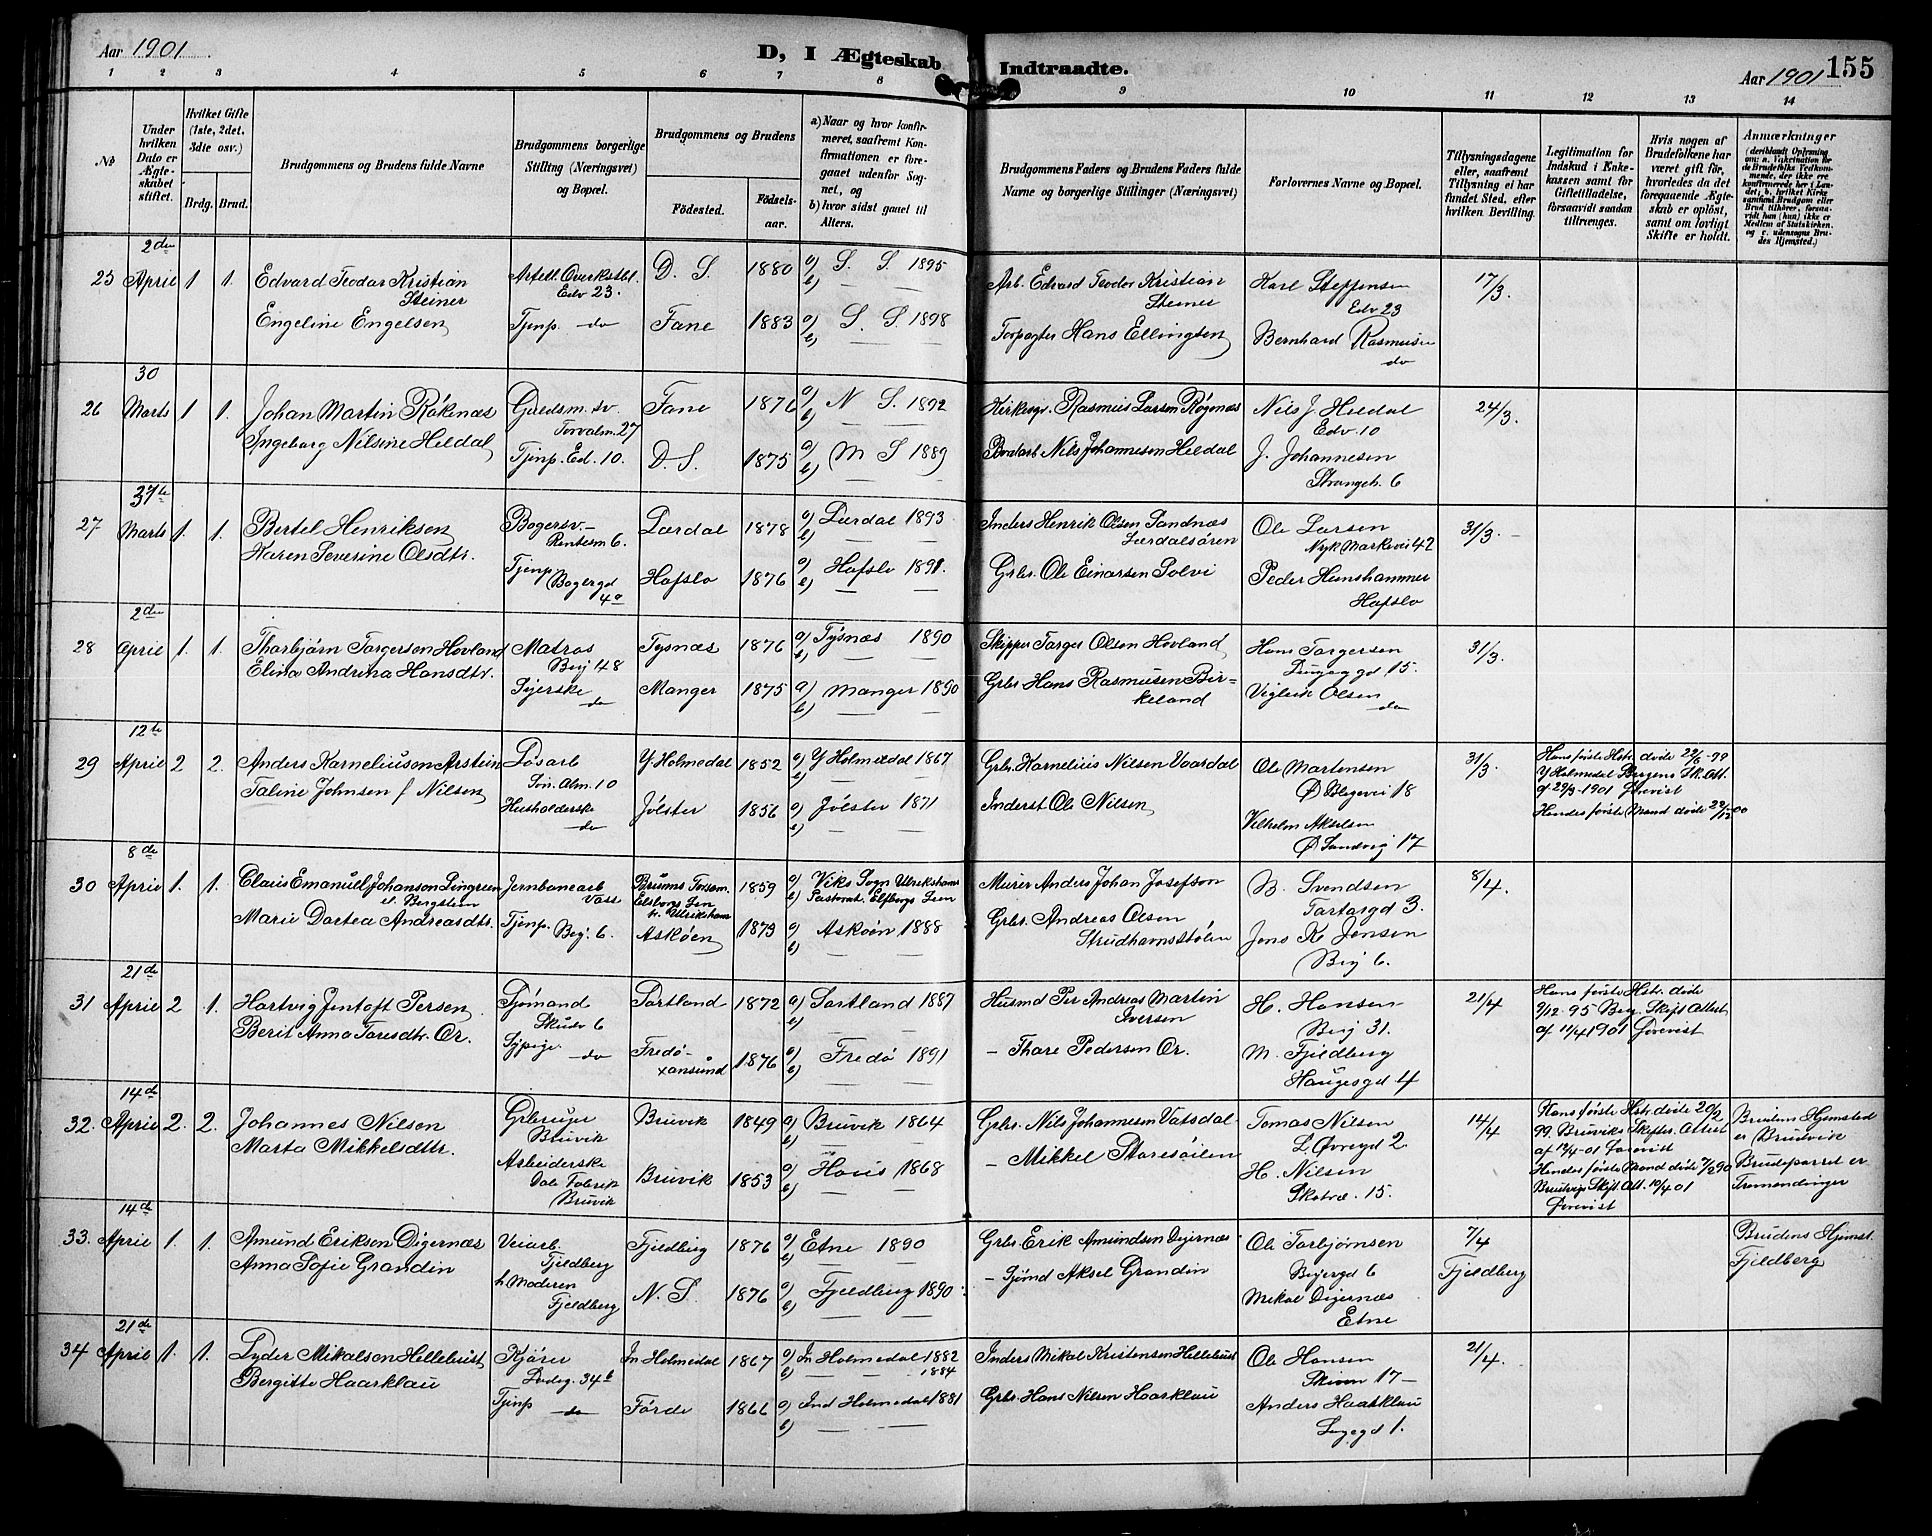 Aar 1901
D, I Ægteskab Indtraadte.
Aar 1901 155
1 2 3 4 5 6 7 8 9 10 11 12 13 14
No
Under hvilken Dato er Ægteskabet stiftet.
Hvilket Gifte (1ste, 2det, 3die osv.)
Brdg. Brud.
Brudgommens og Brudens fulde Navne
Brudgommens borgerlige Stilling (Næringsvei) og Bopæl.
Brudgommens og Brudens
Fødested. Fødselsaar.
a) Naar og hvor konfirmeret, saafremt Konfirmationen er foregaaet udenfor Sognet, og
b) hvor sidst gaaet til Alters.
Brudgommens Faders og Brudens Faders fulde Navne og borgerlige Stillinger (Næringsvei)
Forlovernes Navne og Bopæl.
Tillysningsdagene eller, saafremt Tillysning ei har fundet Sted, efter hvilken Bevilling.
Legitimation for Indskud i Enkekassen samt for Giftetilladelse, forsaavidt saadan tiltrænges.
Hvis nogen af Brudefolkene har været gift før, hvorledes da det foregaaende Ægteskab er opløst, samt om lovligt Skifte er holdt.
Anmærkninger
25 2den April 1 1. Edvard Teodor Kristian Steiner
Edv 23. D. S. 1880 a) S. S. 1895 b)
Arb. Edvard Teodor Kristian Steiner
Karl Steffensen Edv 23 17/3.
Engeline Engelsen Tjenp. do Fane 1883 a) S. S. 1898 b)
Hans Ellingsen Bernhard Rasmusen do
26 30 Marts 1 1. Johan Martin Røkenæs Guldsm. sv. Torvalm. 27 Fane 1876 a) b) N S. 1892
Kirkesgr. Rasmus Larsen Røgenæs Nils J. Heldal Edv. 10 24/3.
Ingeborg Nilsine Heldal Tjenp. Ed. 10. D. S. 1875 a) b) M S 1889
Nils Johannesen Heldal J. Johannesen Strangeh. 6
27 Marts 1. 1. Bertel Henriksen Bagersv. Rentesm 6. Lærdal 1878 a) b) Lærdal 1893
Inders Henrik Olsen Sandnæs Lærdalsøren Ole Larsen Nyk Markevei 42 31/3.
Karen Severine Olsdtr. Tjenp. Bagergd 4a Hafslo 1876 a) b) Hafslo 1891.
Grbr. Ole Einarsen Solvi Peder Hunshammer Hafslo
28 2den April 1. 1. Tharbjørn Torgersen Hovland Matros Berj 48 Tysnæs 1876 a) b) Tysnæs 1890
Skipper Torger Olsen Hovland Hans Torgersen 15. 31/3.
Elina Andrina Hansdtr. Syerske do Manger 1875 a) b) Manger 1890
Grbr Hans Rasmusen Birkeland Vigleik Olsen do
29 12te April 2 2. Anders Karneliuson Løsarb Y. Holmedal 1852 a) b) Y Holmedal 1867
Grbr. Karnelius Nilsen Vaardal Ole Martensen Ø Blegevei 18 31/3.
Hans første Hstr. døde 29/6-99 Y Holmedal Bergens Sk. Att. af 29/3-1901 forevist
Taline Johnsen f Nilsen Husholderske do Jølster 1856 a) b) Jølster 1871
Inderst Ole Nilsen Vilhelm Akselsen Ø Sandvig 17
Hendes første Mand døde 29/12-00
30 8de April 1. 1. Claus Emanuel Johanson Lingreen Bergstein Jernbanearb Voss 1859
a) Viks Sogn Ulrikshams b) Pastorat. Elfborgs Len
Murer Anders Johan Josefson B. Svendsen Tartargd 3. 8/4.
Marie Dortea Andreasdtr. Tjenp. Berj. 6. Askøen 1873 a) b) Askøen 1888
Grbr. Andreas Olsen Strudhamsstølen Jens K Jensen Berj 6.
31 21de April 2 1. Hartvig Jentoft Persen Sjømand Skudv 6 Sortland 1872 a) b) Sortland 1887
Husmd Per Andreas Martin Iversen H. Hansen Berj 31. 21/4
Hans første Hstr. døde 9/12-95 Berg. Skift Attest af 11/4 1901 forevist
Berit Anna Taresdtr. Or. Sypige do Fredø Kristiansund 1876 a) b) Fredø 1891
- Thare Pedersen Or. M. Fjeldberg Haugesgd 4
32. 14de April 2. 2. Johannes Nilsen Bruvik Bruvik 1849 a) b) Bruvik 1864
Grbr. Nils Johannesen Vatsdal Tomas Nilsen L. Øvregd 2 14/4
Hans første Hstr. døde 20/2 99. Bruviks Skifter. Attest af 12/4-01 forevist
Brudens Hjemsted er Brudvik
Marta Mikkelsdtr. Arbeiderske Dale Fabrik Bruvik Bruvik 1853 a) b) Haus 1868
- Mikkel Storesøilen H. Nilsen Skotvd. 15.
Hendes første Mand døde 7/8 90 Brudvigs Skift. Att. 10/4 01 forevist
Brudeparret er Tremendinger
33. 14de April 1. 1. Amund Eriksen Digernæs Veiarb. Fjeldberg Fjeldberg 1876 a) b) Etne 1890
Grbr. Erik Amundsen Digernæs Ole Torbjørnsen Berjergd 6 7/4 Fjeldberg
Brudens Hjemst. Fjeldberg
Anna Sofie Grandin h. Moderen Fjeldberg N. S. 1876 a) b) Fjeldberg 1890
- Sjømd Aksel Grandin Mikal Digernæs Etne
34 21de April 1. 1. Lyder Mikalsen Hellebust Kjører 34b In Holmedal 1867 a) In Holmedal 1882 b) 1884
Inders Mikal Kristensen Hellebust Ole Hansen Skiven 17 21/4.
Bergitte Haarklau Tjenp do Førde 1866 a) b) Ind Holmedal 1881
Grbr. Hans Nilsen Haarklau Anders Haarklau 1.